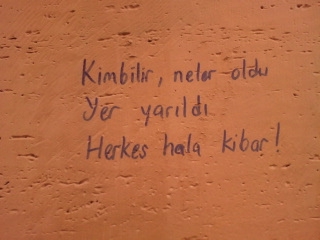 Kimbilir, neler oldu
Yer yarıldı
Herkes hala kibar!